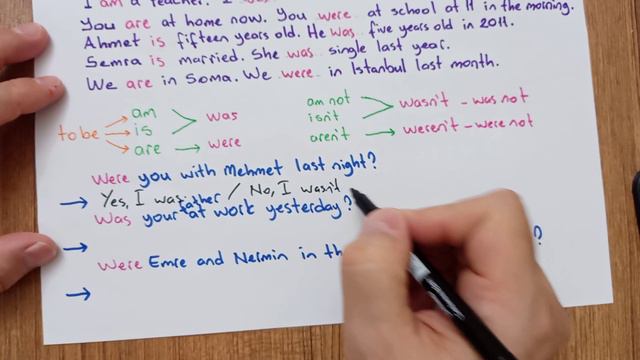 I am a teacher. I
You are at home now. You were at school at 11 in the morning.
Ahmet is fifteen years old. He was five years old in 2011.
Semra is married. She was single last year.
We are in Soma. We were in Istanbul last month.
to be
am
is
are
was
were
am not
isn't
aren't
wasn't - was not
weren't - were not
Were you with Mehmet last night?
Yes, I was / No, I wasn't
Was your father at work yesterday?
Were Emre and Nermin in ?